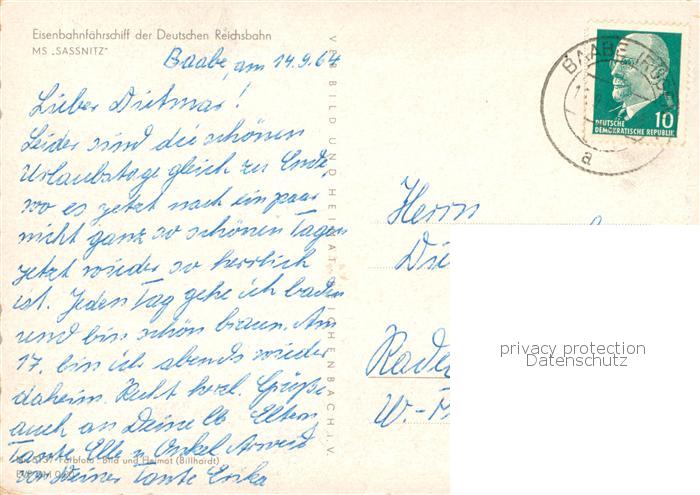 Eisenbahnfährschiff der Deutschen Reichsbahn
MS „SASSNITZ"
Baabe, am 14.9.64
Lieber Dietmar!
Leider sind die schönen
Urlaubstage gleich zu Ende,
wo es jetzt nach ein paar
nicht ganz so schönen Tagen
jetzt wieder so herrlich
ist. Jeden Tag gehe ich baden
und bin schön braun. Am
17. bin ich abends wieder
daheim. Recht herzl. Grüße
auch an Deine lb. Eltern,
Tante Elle u. Onkel
von Deiner Tante Erika
Farbfoto: Bild und Heimat (Billhardt)
VEB BILD UND HEIMAT REICHENBACH I. V.
BAABE (RÜGEN)
a
10
DEUTSCHE
DEMOKRATISCHE REPUBLIK
Herrn
Die
Rade
W-
privacy protection
Datenschutz